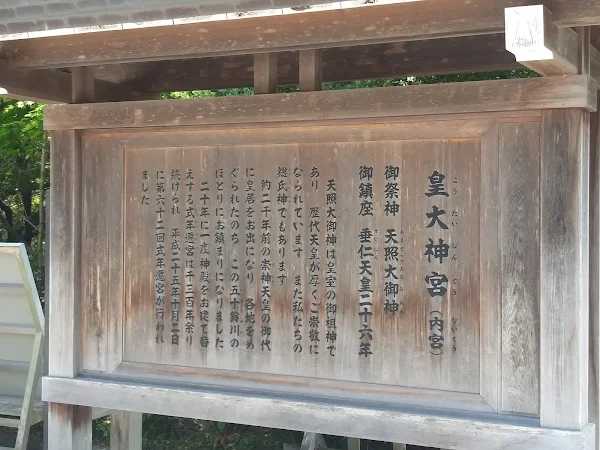 皇大神宮（内宮）
こうたいじんぐう ないくう
御祭神 天照大御神
あまてらすおおみかみ
御鎮座 垂仁天皇二十六年
天照大御神は皇室の御祖神で
あり 歴代天皇が厚くご崇敬に
なられています また私たちの
総氏神でもあります
約二千年前の崇神天皇の御代
に皇居をお出になり 各地をめ
ぐられたのち この五十鈴川の
ほとりにお鎮まりになりました
二十年に一度神殿をお建て替
えする式年遷宮は千三百年余り
続けられ 平成二十五年十月二日
に第六十二回式年遷宮が行われ
ました